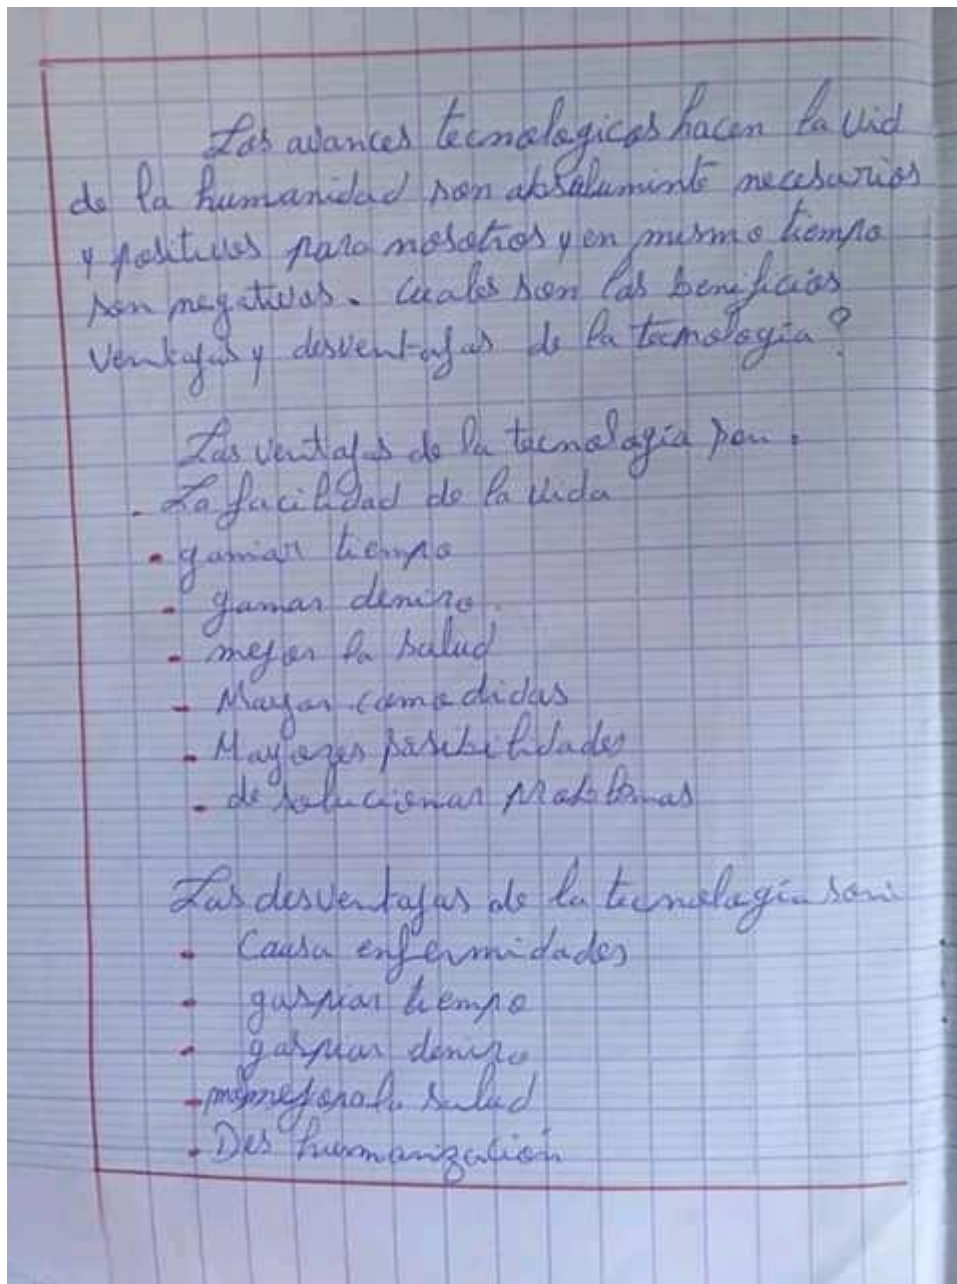 Las avances tecnologicos hacen la vid
de la humanidad son absaluminte necesarios
y positivos para nosotros y en mismo tiempo
son negativos. Cuales son las beneficios
ventajas y desventajas de la tecnologia?
Las ventajas de la tecnologia son :
- La facilidad de la vida
- gamiar tiempo
- gamar deniro.
- mejor la salud
- Mayor comodidas
- Mayores posibilidades
- de solucionar problemas
Las desventajas de la tecnologia son:
- Causa enfermidades
- gaspiar tiempo
- gaspiar deniro
- la salud
- Des humanización